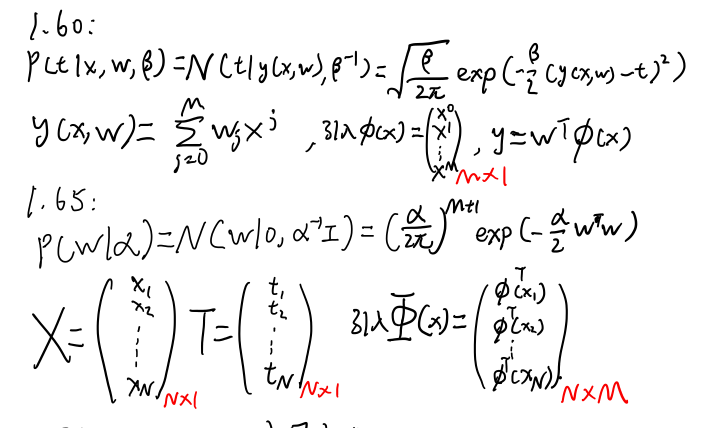 1.60:
p(t|x,w,β)=N(t|y(x,w),β⁻¹)=√(β/2π) exp(-β/2 (y(x,w)-t)²)
y(x,w)=∑_{j=0}^{M} w_j x^j ,引入ϕ(x)=(x⁰ x¹ ⋮ x^M)_{M×1} , y=w^T ϕ(x)
1.65:
p(w|α)=N(w|0,α⁻¹I)=(α/2π)^{M+1} exp(-α/2 w^T w)
X=(x₁ x₂ ⋮ x_N)_{N×1} T=(t₁ t₂ ⋮ t_N)_{N×1} 引入Φ(x)=(ϕ^T(x₁) ϕ^T(x₂) ⋮ ϕ^T(x_N))_{N×M}